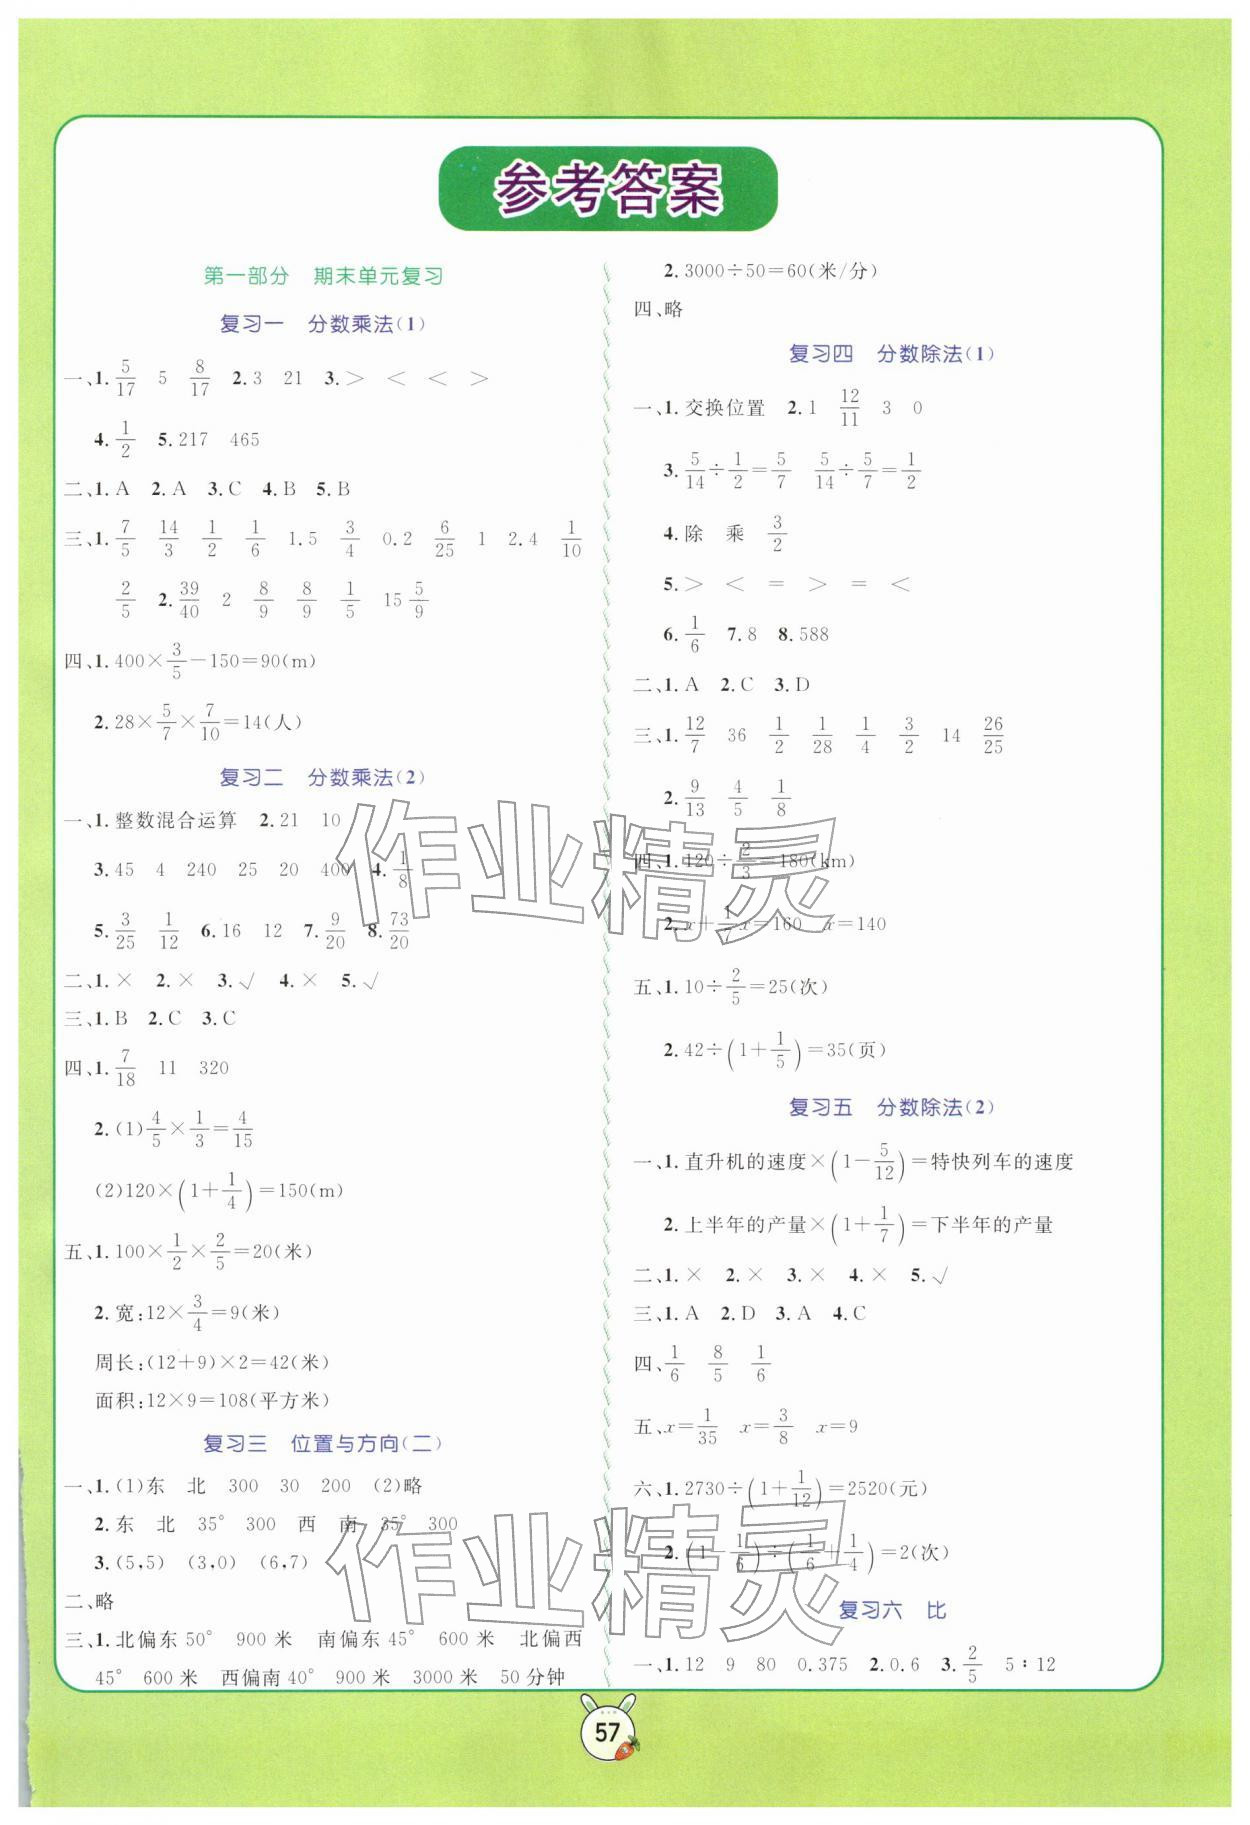 参考答案
第一部分 期末单元复习
复习一 分数乘法(1)
一、1. 5/17 5 8/17 2. 3 21 3. > < < >
4. 1/2 5. 217 465
二、1. A 2. A 3. C 4. B 5. B
三、1. 7/5 14/3 1/2 1/6 1.5 3/4 0.2 6/25 1 2.4 1/10
2/5 2. 39/40 2 8/9 8/9 1/5 15 5/9
四、1. 400×3/5－150=90(m)
2. 28×5/7×7/10=14(人)
复习二 分数乘法(2)
一、1. 整数混合运算 2. 21 10
3. 45 4 240 25 20 400 4. 1/8
5. 3/25 1/12 6. 16 12 7. 9/20 8. 73/20
二、1. × 2. × 3. √ 4. × 5. √
三、1. B 2. C 3. C
四、1. 7/18 11 320
2. (1) 4/5×1/3=4/15
(2)120×(1+1/4)=150(m)
五、1. 100×1/2×2/5=20(米)
2. 宽:12×3/4=9(米)
周长:(12+9)×2=42(米)
面积:12×9=108(平方米)
复习三 位置与方向(二)
一、1. (1)东 北 300 30 200 (2)略
2. 东 北 35° 300 西 南 35° 300
3. (5,5) (3,0) (6,7)
二、略
三、1. 北偏东50° 900米 南偏东45° 600米 北偏西
45° 600米 西偏南40° 900米 3000米 50分钟
2. 3000÷50=60(米/分)
四、略
复习四 分数除法(1)
一、1. 交换位置 2. 1 12/11 3 0
3. 5/14÷1/2=5/7 5/14÷5/7=1/2
4. 除 乘 3/2
5. > < = > = <
6. 1/6 7. 8 8. 588
二、1. A 2. C 3. D
三、1. 12/7 36 1/2 1/28 1/4 3/2 14 26/25
2. 9/13 4/5 1/8
四、1. 120÷2/3=180(km)
2. x+1/7x=160 x=140
五、1. 10÷2/5=25(次)
2. 42÷(1+1/5)=35(页)
复习五 分数除法(2)
一、1. 直升机的速度×(1－5/12)=特快列车的速度
2. 上半年的产量×(1+1/7)=下半年的产量
二、1. × 2. × 3. × 4. × 5. √
三、1. A 2. D 3. A 4. C
四、1/6 8/5 1/6
五、x=1/35 x=3/8 x=9
六、1. 2730÷(1+1/12)=2520(元)
2. (1－1/6)÷(1/6+1/4)=2(次)
复习六 比
一、1. 12 9 80 0.375 2. 0.6 3. 2/5 5∶12
作业精灵
作业精灵
57